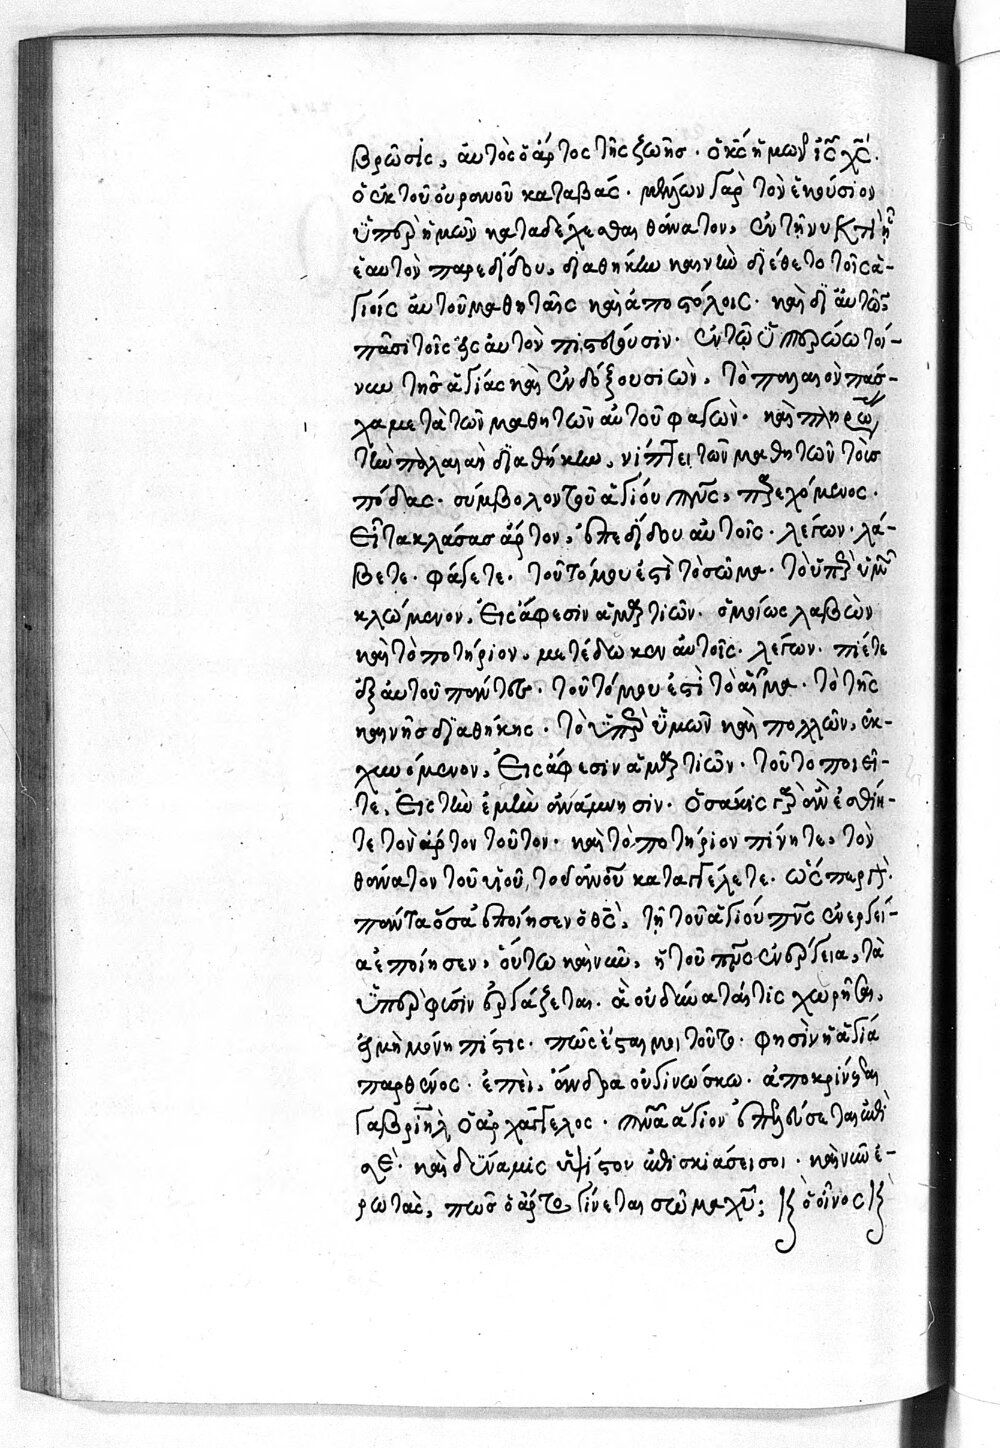 βρῶσις, αὐτὸς ὁ ἄρτος τῆς ζωῆς· ὁ κ̅ς̅ ἡμῶν ι̅ς̅ χ̅ς̅·
ὁ ἐκ τοῦ οὐρανοῦ καταβάς· μέλλων γὰρ τὸν ἑκούσιον
ὑπὲρ ἡμῶν καταδέχεσθαι θάνατον, ἐν τῇ νυκτὶ ᾗ
ἑαυτὸν παρεδίδου, διαθήκην καινὴν διέθετο τοῖς ἁ-
γίοις αὐτοῦ μαθηταῖς καὶ ἀποστόλοις· καὶ δι' αὐτῶν
πᾶσι τοῖς εἰς αὐτὸν πιστεύουσιν· ἐν τῷ ὑπερώῳ τοί-
νυν τῆς ἁγίας καὶ ἐνδόξου σιών, τὸ παλαιὸν πάσ-
χα μετὰ τῶν μαθητῶν αὐτοῦ φαγών· καὶ πληρώσας
τὴν παλαιὰν διαθήκην, νίπτει τῶν μαθητῶν τοὺς
πόδας· σύμβολον τοῦ ἁγίου π̅ν̅ς̅, παρεχόμενος·
Εἶτα κλάσας ἄρτον, ἐπεδίδου αὐτοῖς· λέγων· λά-
βετε· φάγετε· τοῦτό μου ἐστὶ τὸ σῶμα· τὸ ὑπὲρ ὑμῶν
κλώμενον, εἰς ἄφεσιν ἁμαρτιῶν· ὁμοίως λαβὼν
καὶ τὸ ποτήριον, μετέδωκεν αὐτοῖς· λέγων· πίετε
ἐξ αὐτοῦ πάντες· τοῦτό μου ἐστὶ τὸ αἷμα· τὸ τῆς
καινῆς διαθήκης· τὸ ὑπὲρ ὑμῶν καὶ πολλῶν, ἐκ-
χυνόμενον, εἰς ἄφεσιν ἁμαρτιῶν· τοῦτο ποιεῖ-
τε, εἰς τὴν ἐμὴν ἀνάμνησιν· ὁσάκις γὰρ ἂν ἐσθίη-
τε τὸν ἄρτον τοῦτον· καὶ τὸ ποτήριον πίνητε, τὸν
θάνατον τοῦ υἱοῦ τοῦ ἀνου καταγγέλετε· ὥσπερ γὰρ·
πάντα ὅσα ἐποίησεν ὁ θ̅ς̅, τῇ τοῦ ἁγίου π̅ν̅ς̅ ἐνεργεί-
α ἐποίησεν, οὕτω καὶ νῦν, ἡ τοῦ π̅ν̅ς̅ ἐνέργεια, τὰ
ὑπὲρ φύσιν ἐργάζεται· ἃ οὐ δύναται τις χωρῆσαι,
εἰ μὴ μόνη πίστις· πῶς ἔσται μοι τοῦτο· φησὶν ἡ ἁγία
παρθένος· ἐπεὶ, ἄνδρα οὐ γινώσκω· ἀποκρίνεται
γαβριὴλ ὁ ἀρχάγγελος· π̅ν̅α̅ ἅγιον ἐπελεύσεται ἐπὶ
σέ· καὶ δύναμις ὑψίστου ἐπισκιάσει σοι· καὶ νῦν ἐ-
ρωτᾶς, πῶς ὁ ἄρτος γίνεται σῶμα χ̅υ̅; ὁ οἶνος